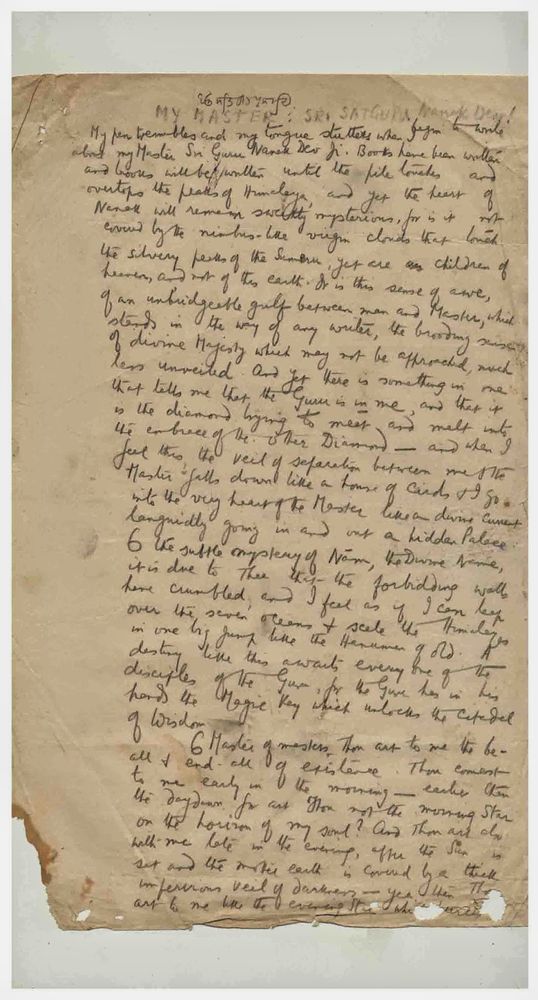 ੴ ਸਤਿਗੁਰ ਪ੍ਰਸਾਦਿ
MY MASTER : SRI SATGURU Nanak Dev!
My pen trembles and my tongue stutters when I begin to write
about my Master Sri Guru Nanak Dev Ji. Books have been written
and books will be written until the pile touches and
overtops the peaks of Himalaya, and yet the heart of
Nanak will remain sweetly mysterious, for is it not
covered by the nimbus-like virgin clouds that touch
the silvery peaks of the Sumeru, yet are children of
heaven, and not of this earth. It is this sense of awe,
of an unbridgeable gulf between man and Master, which
stands in the way of any writer, the brooding sense
of divine Majesty which may not be approached, much
less unveiled. And yet there is something in one
that tells me that the Guru is in me, and that it
is the diamond trying to meet and melt into
the embrace of the other Diamond — and when I
feel this the veil of separation between me & the
Master falls down like a house of cards & I go
into the very heart of the Master like a divine current
languidly going in and out a hidden Palace.
O the subtle mystery of Nam, the Divine Name,
it is due to Thee that the forbidding walls
have crumbled, and I feel as if I can leap
over the seven oceans & scale the Himalayas
in one big jump like the Hanuman of old. A
destiny like this awaits every one of the
disciples of the Guru, for the Guru has in his
hands the Magic Key which unlocks the Citadel
of Wisdom.
O Master of masters, Thou art to me the be-
all & end-all of existence. Thou comest
to me early in the morning — earlier than
the daydawn, for art Thou not the morning Star
on the horizon of my soul? And Thou art also
with me late in the evening, after the Sun is
set and the mother earth is covered by a thick
impervious veil of darkness — yea then Thou
art to me like the evening Star which